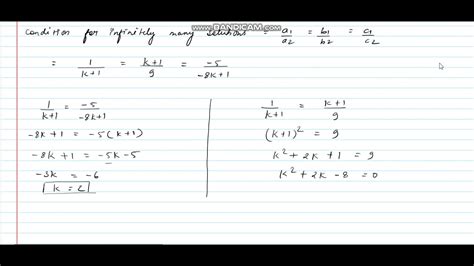 www.BANDICAM.com
Condition for infinitely many solutions = a1/a2 = b1/b2 = c1/c2
= 1/k+1 = k+1/9 = -5/-8k+1
1/k+1 = -5/-8k+1
-8k+1 = -5(k+1)
-8k+1 = -5k-5
-3k = -6
k = 2
1/k+1 = k+1/9
(k+1)² = 9
k² + 2k + 1 = 9
k² + 2k - 8 = 0